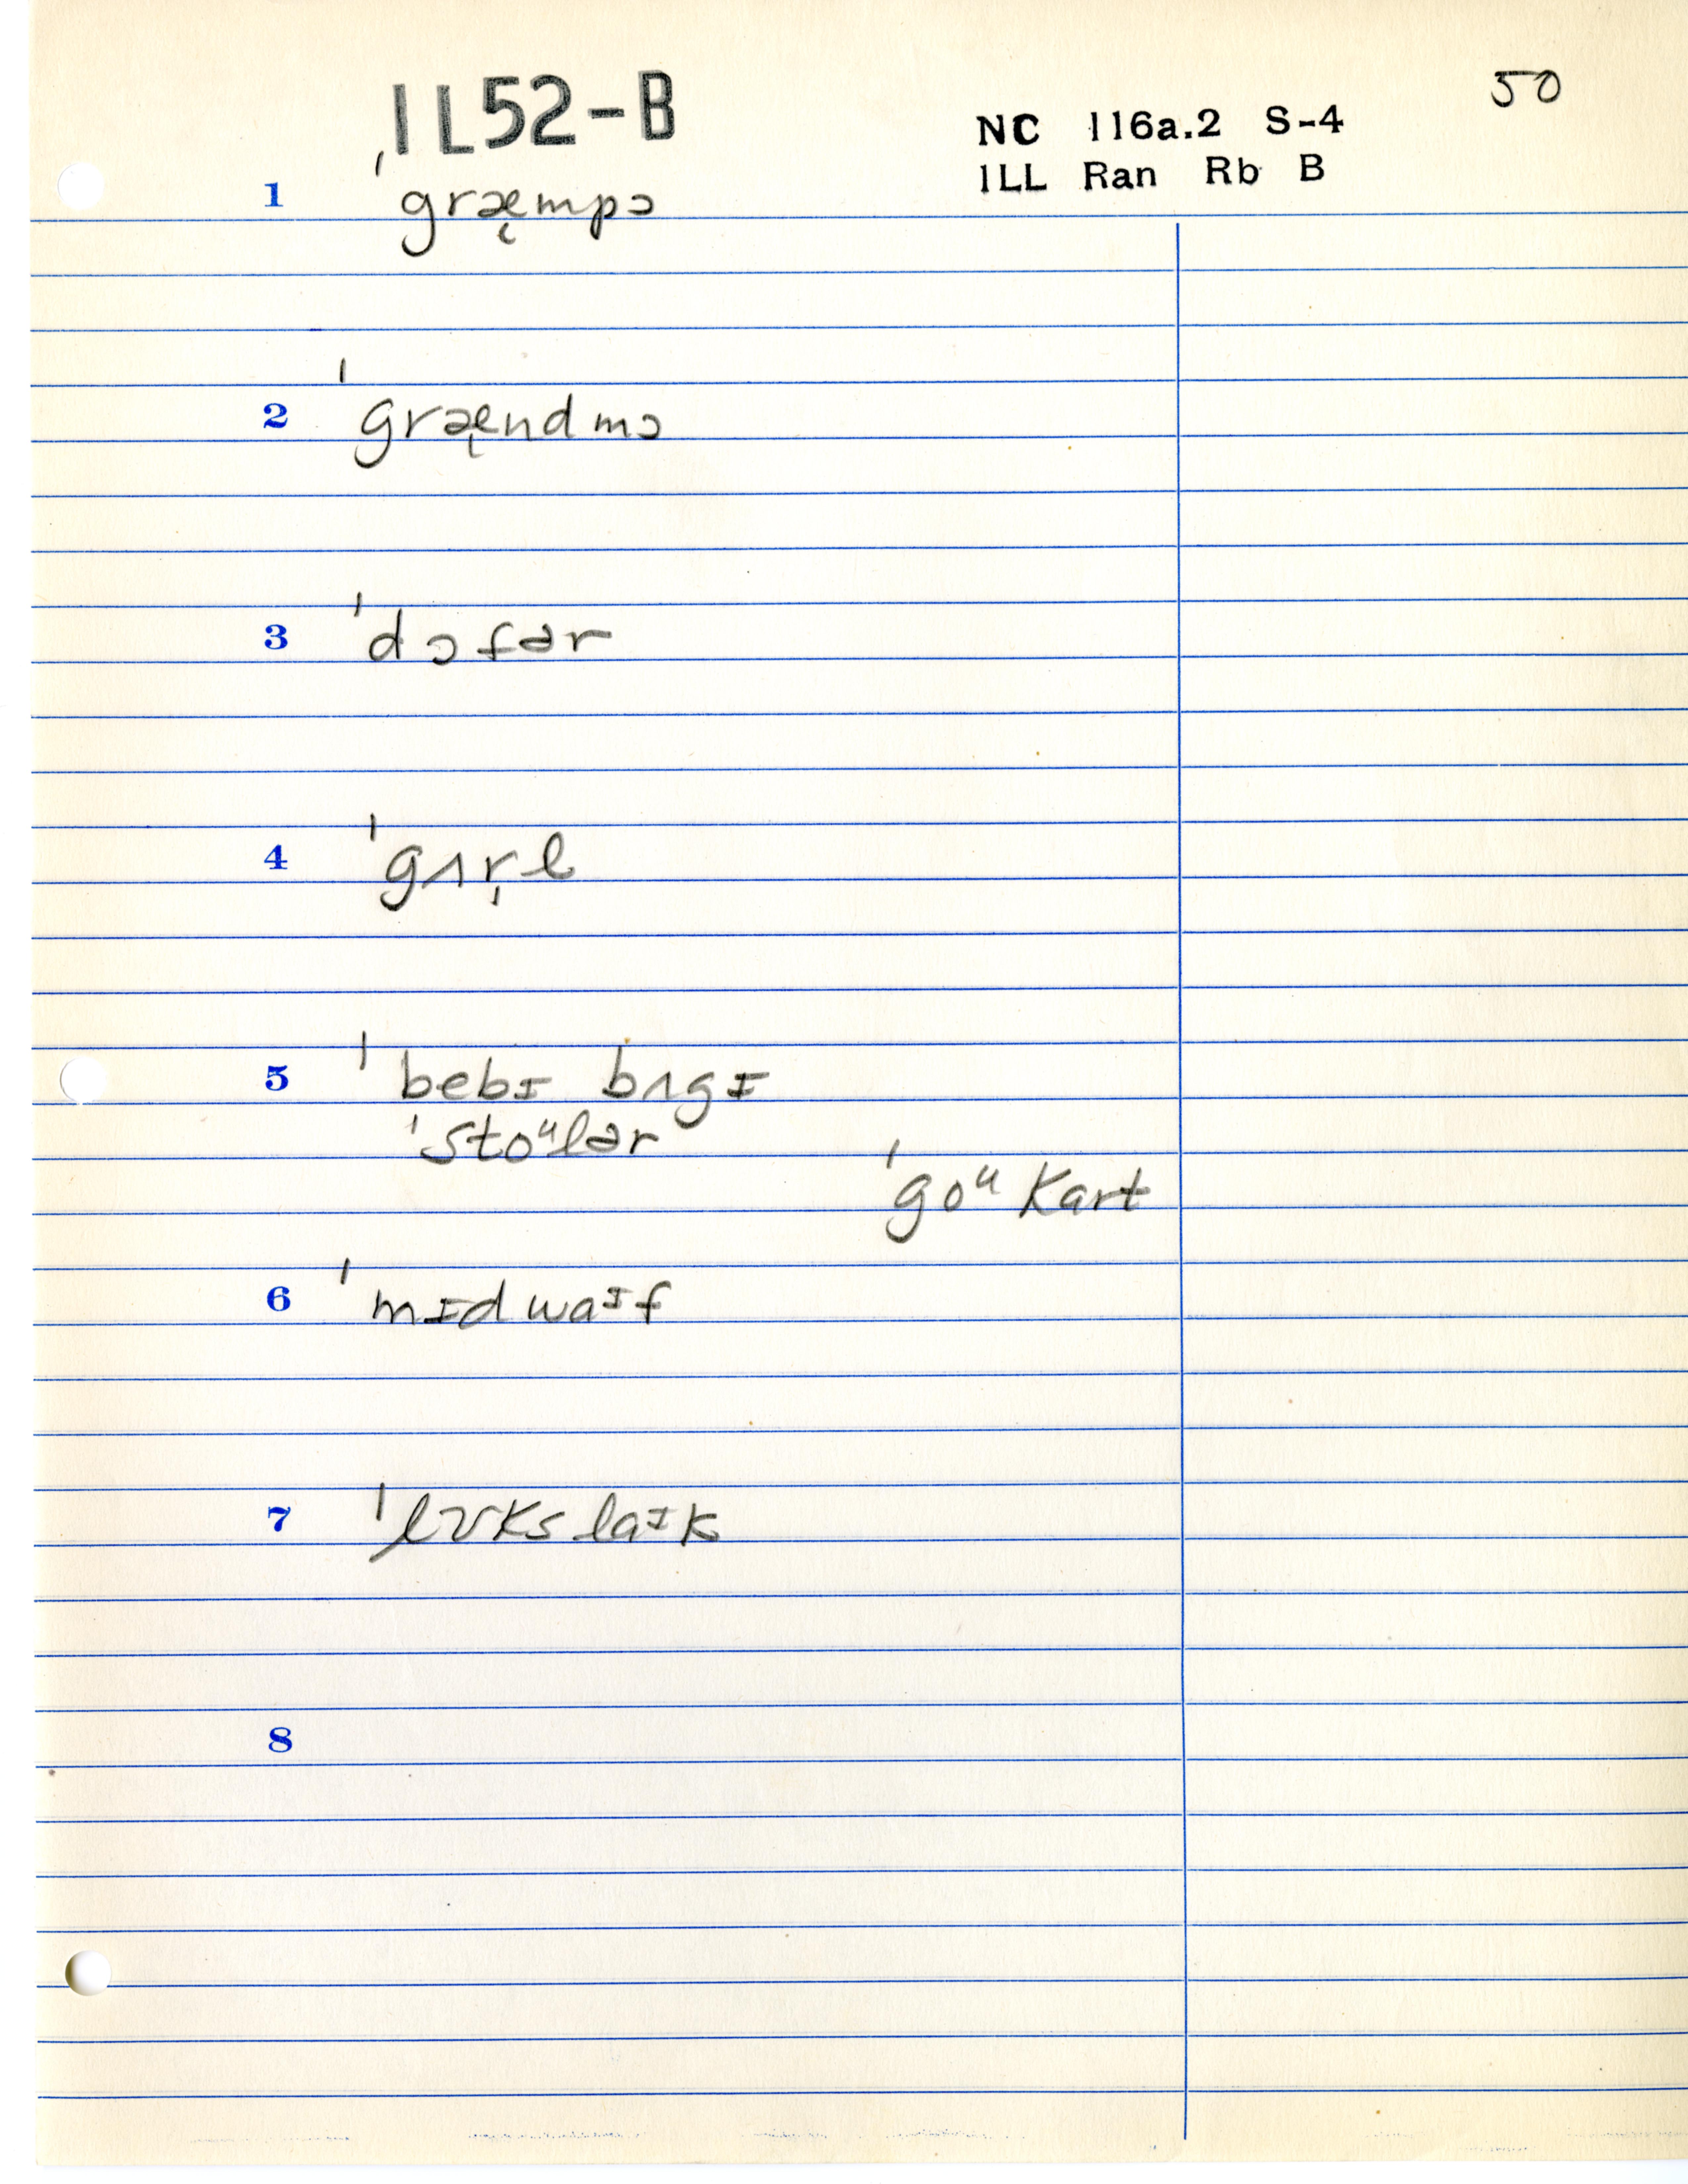 IL52-B
50
NC 116a.2 S-4
ILL Ran Rb B
1 ˈgræ̨mpɔ
2 ˈgræ̨ndmɔ
3 ˈdɔfər
4 ˈgʌr̩l
5 ˈbebɪ bʌgɪ
ˈstoᵘlər
ˈgoᵘ kart
6 ˈmɪdwaᶦf
7 ˈlʊks laᶦk
8